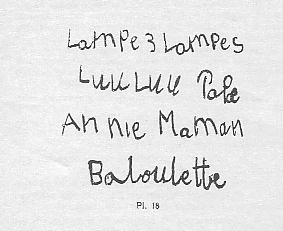 Lampe 3 Lampes
LuLu LuLu Papa
Annie Maman
Baloulette
Pl. 18